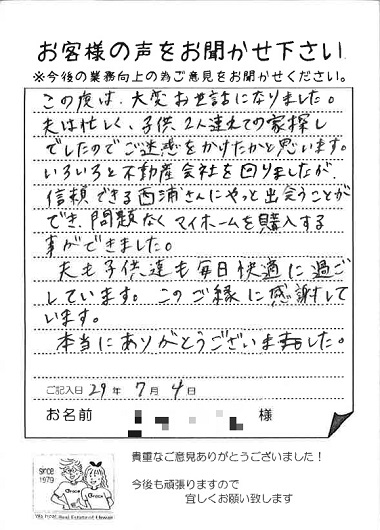 お客様の声をお聞かせ下さい
※今後の業務向上の為ご意見をお聞かせください。
この度は、大変お世話になりました。
夫は忙しく、子供2人連れての家探し
でしたのでご迷惑をかけたかと思います。
いろいろと不動産会社を回りましたが、
信頼できる西浦さんにやっと出会うことが
でき、問題なくマイホームを購入する
事ができました。
夫も子供達も毎日快適に過ご
しています。このご縁に感謝して
います。
本当にありがとうございました。
ご記入日 29年 7月 4日
お名前 様
since
1979
貴重なご意見ありがとうございました!
今後も頑張りますので
宜しくお願い致します